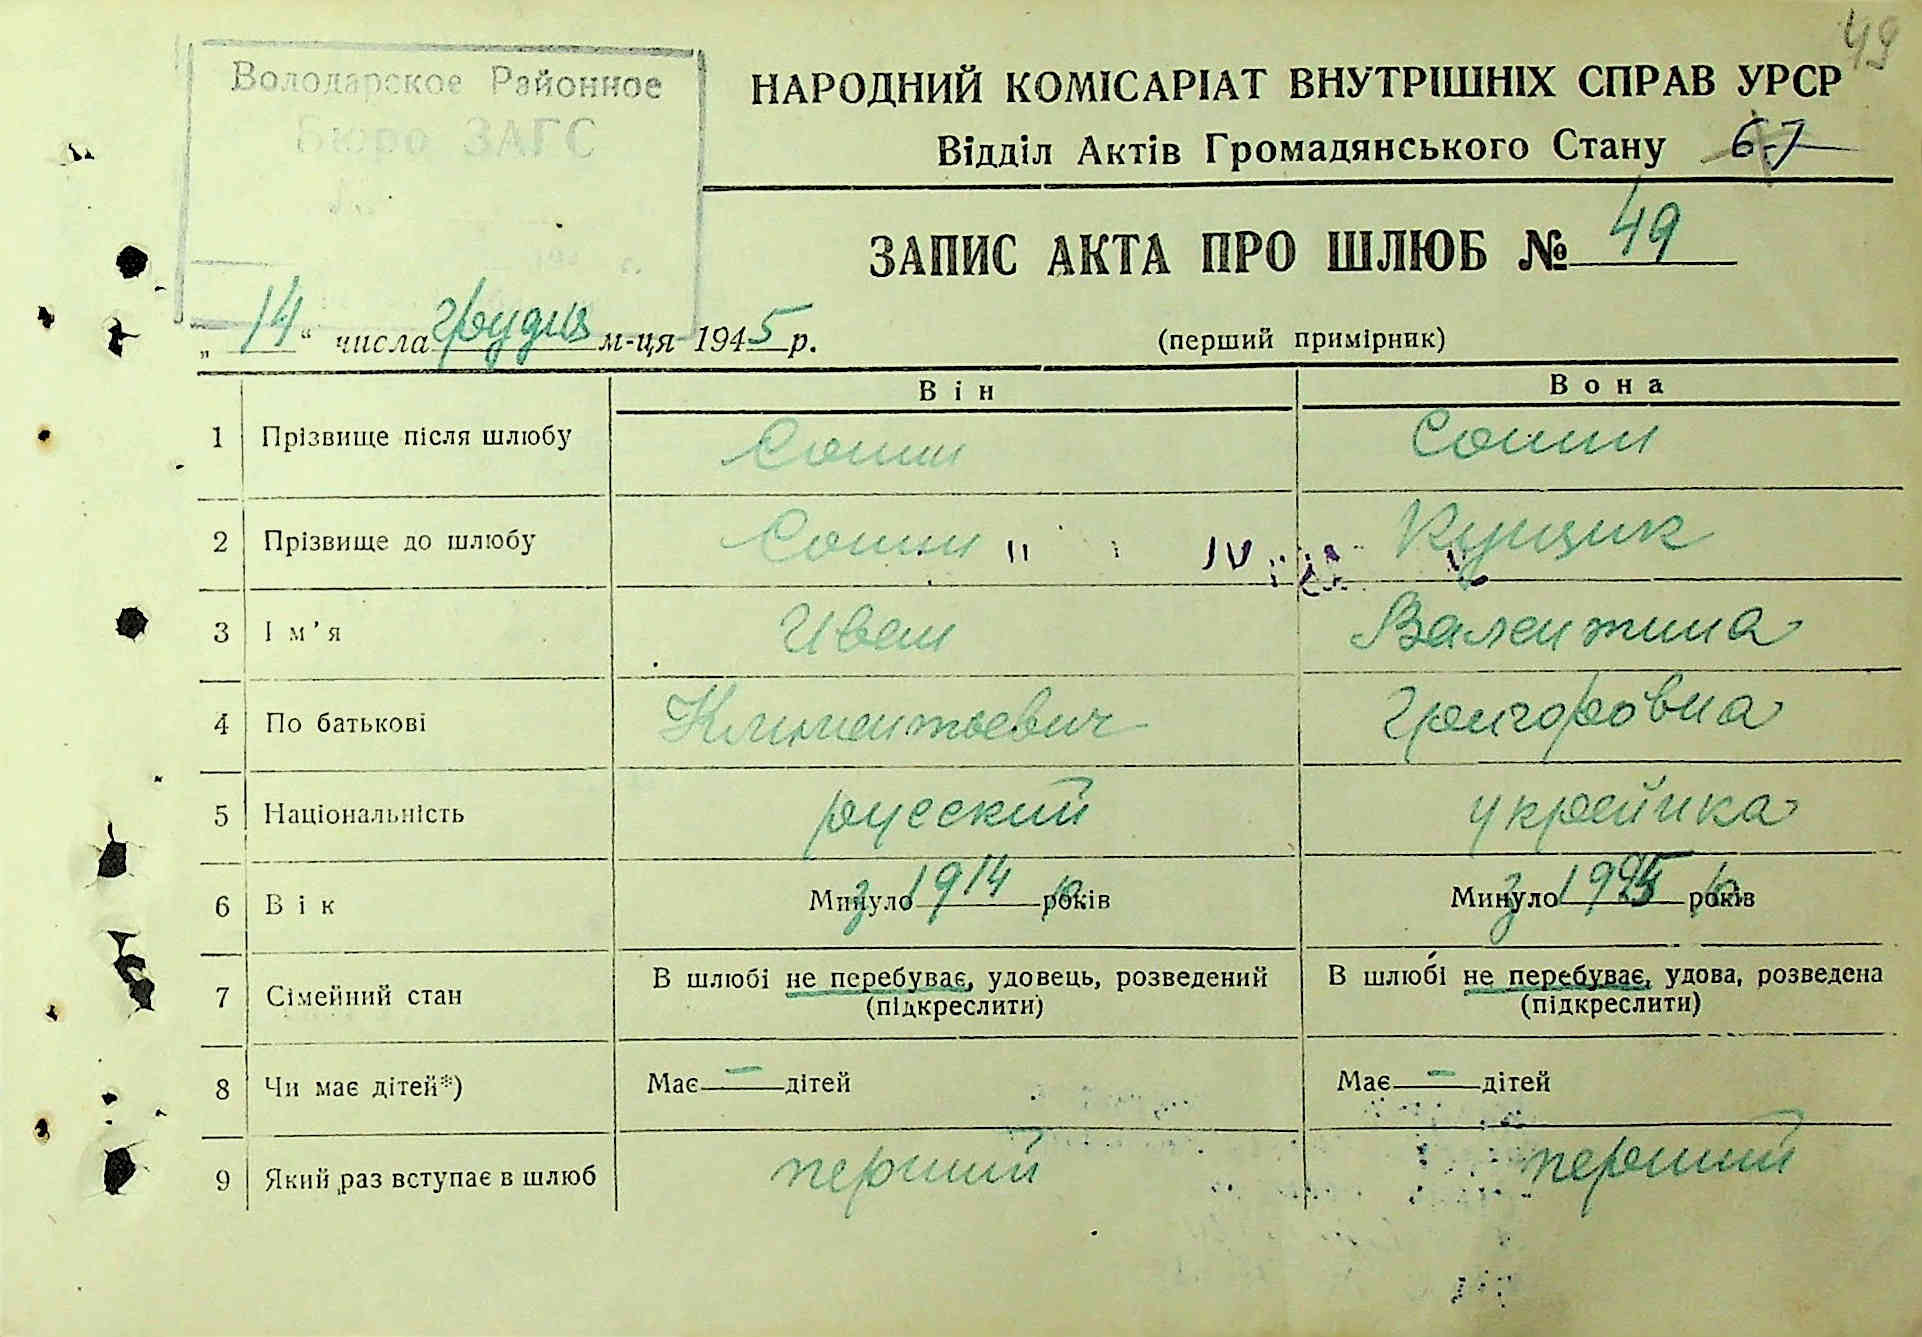 49
Володарское Районное
Бюро ЗАГС
НАРОДНИЙ КОМІСАРІАТ ВНУТРІШНІХ СПРАВ УРСР
Відділ Актів Громадянського Стану 67
ЗАПИС АКТА ПРО ШЛЮБ № 49
„14“ числа грудня м-ця 1945 р.
(перший примірник)
Він Вона
1 Прізвище після шлюбу Сошин Сошин
2 Прізвище до шлюбу Сошин Кущик
3 Ім’я Иван Валентина
4 По батькові Климентьевич Григоровна
5 Національність русский українка
6 Вік Минуло з 1914 р років Минуло з 1925 р років
7 Сімейний стан В шлюбі не перебуває, удовець, розведений В шлюбі не перебуває, удова, розведена
(підкреслити) (підкреслити)
8 Чи має дітей*) Має — дітей Має — дітей
9 Який раз вступає в шлюб перший перший